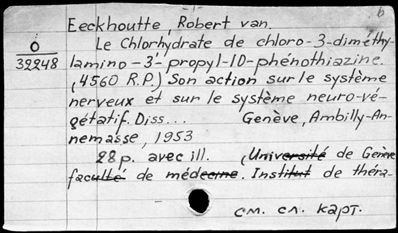 -1-
б
Eeckhoutte, Robert van.
O
32248
Le Chlorhydrate de chloro-3-diméthy-
lamino-3-propyl-10-phénothiazine
(4560 R.P.) Son action sur le système
nerveux et sur le système neuro-vé-
gétatif. Diss... Genève, Ambilly-An-
nemasse, 1953
28 p. avec ill. (Université de Genève
faculté de médecine. Institut de théra-
см. сл. карт.